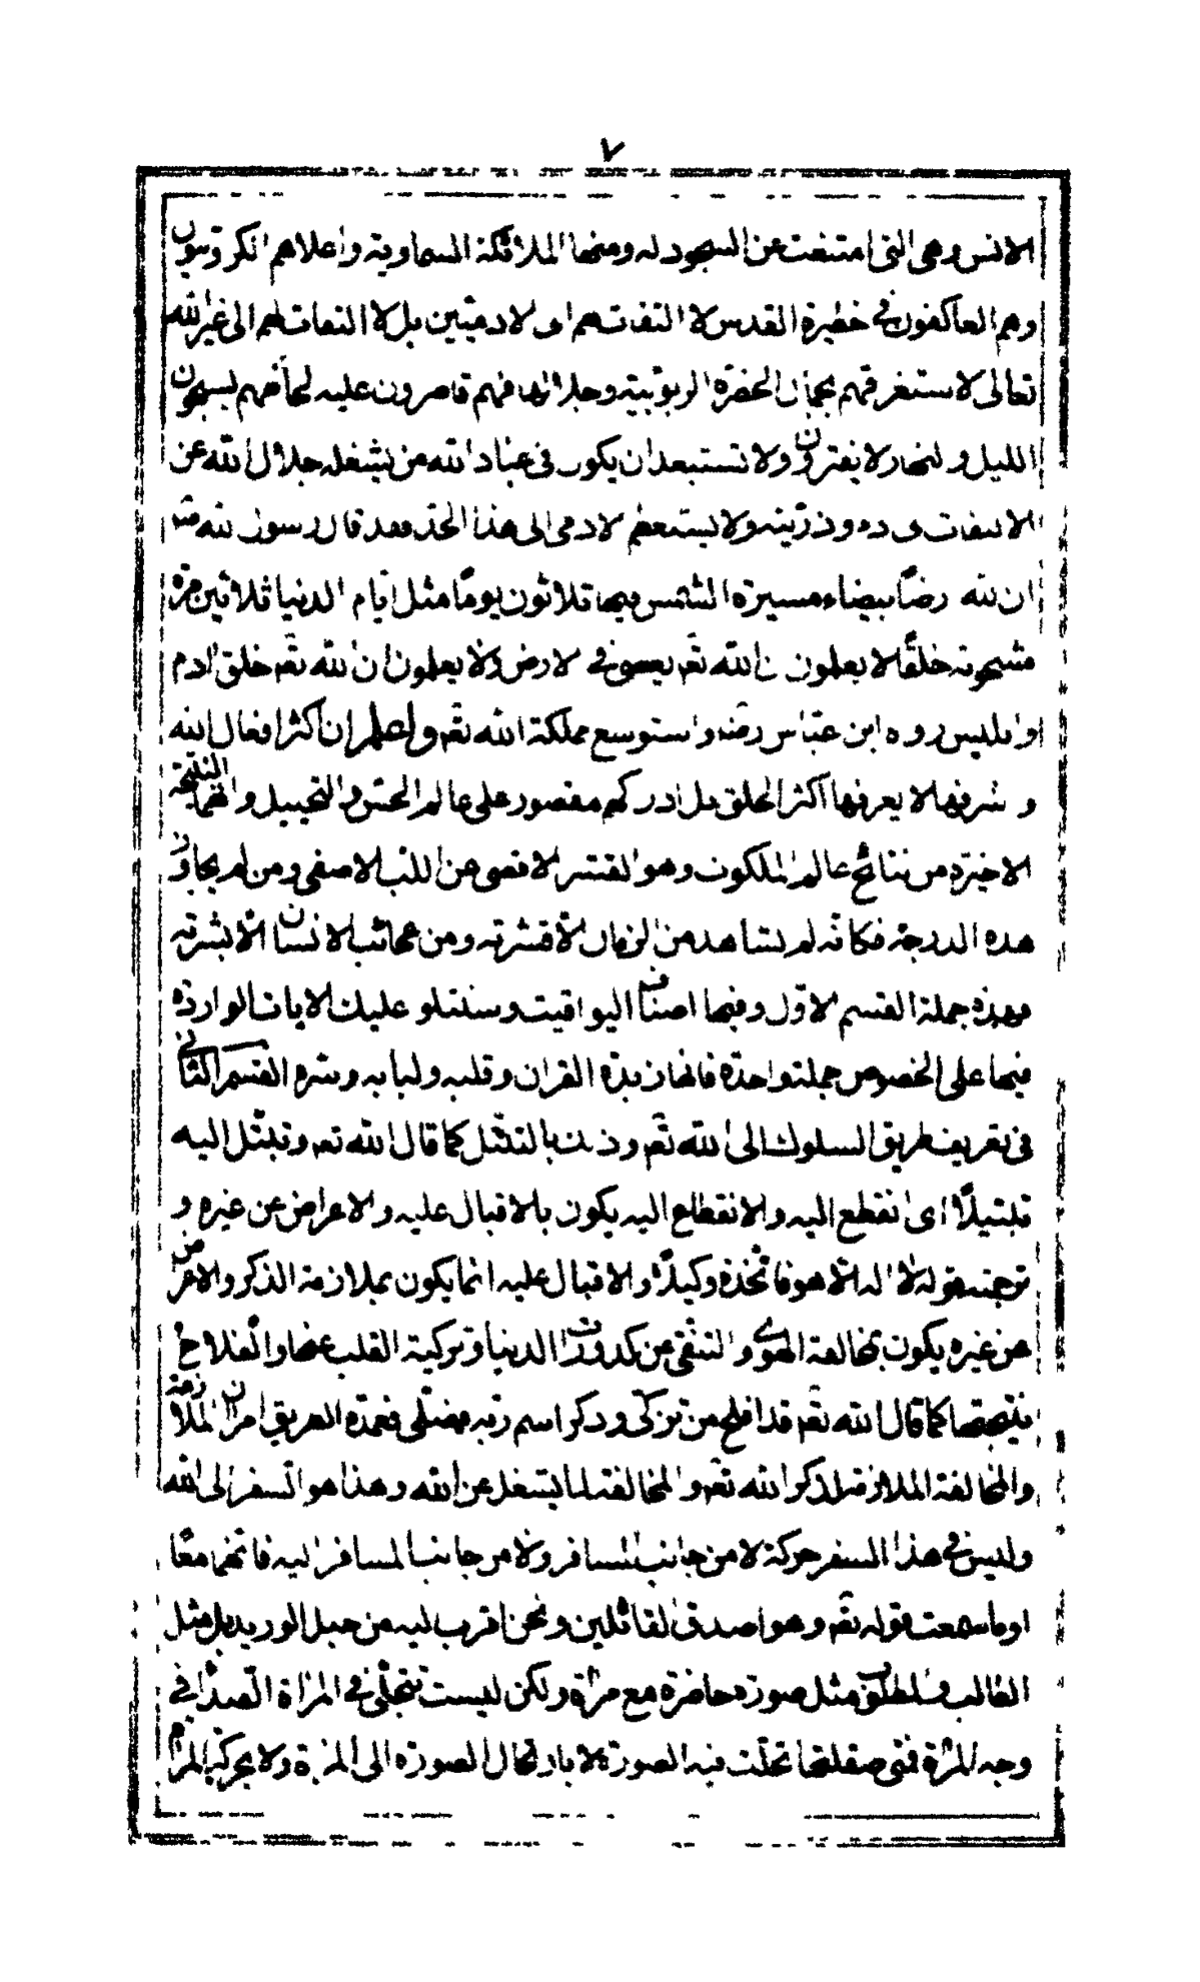 ٧
الانس وهى التى امتنعت عن السجود له ومنها الملائكة السماوية واعلاهم الكروبيون
وهم العاكفون فى حظيرة القدس لا التفات لهم الى الآدميين بل لا التفات لهم الى غير الله
تعالى لاستغراقهم بجمال الحضرة الربوبية وجلالها فهم قاصرون عليه لحاظهم يسبحون
الليل والنهار لا يفترون ولا تستبعد ان يكون فى عباد الله من يشغله جلال الله عن
الالتفات الى آدم وذريته ولا يستعظم الادمى الى هذا الحد فقد قال رسول الله صم
ان لله ارضًا بيضاء مسيرة الشمس فيها ثلاثون يومًا مثل ايام الدنيا ثلاثين مرة
مشحونة خلقًا لا يعلمون ان الله تعم يعصى فى الارض ولا يعلمون ان الله تعم خلق ادم
وابليس رواه ابن عباس رضه واستوسع مملكة الله تعم واعلم ان اكثر افعال الله
واشرفها لا يعرفها اكثر الخلق بل ادراكهم مقصور على عالم الحس والتخييل وانهما النتيجة
الاخيرة من نتائج عالم الملكوت وهو القشر الاقصى عن اللب الاصفى ومن لم يجاوز
هذه الدرجة فكانه لم يشاهد من الرمان الا قشرته ومن عجائب الانسان الا بشرته
فهذه جملة القسم الاول وفيها اصناف اليواقيت وسنتلو عليك الايات الواردة
فيها على الخصوص جملة واحدة فانها زبدة القران وقلبه ولبابه وسره القسم الثانى
فى تعريف طريق السلوك الى الله تعم وذلك بالتبتل كما قال الله تعم وتبتل اليه
تبتيلًا اى انقطع اليه والانقطاع اليه يكون بالاقبال عليه والاعراض عن غيره و
ترجمته قوله لا اله الا هو فاتخذه وكيلًا والاقبال عليه انما يكون بملازمة الذكر والاعراض
عن غيره يكون بمخالفة الهوى والتنقى عن كدورات الدنيا وتزكية القلب عنها والفلاح
نتيجتها كما قال الله تعم قد افلح من تزكى وذكر اسم ربه فصلى فعمدة الطريق امران الملازمة
والمخالفة الملازمة لذكر الله تعم والمخالفة لما يشغل عن الله وهذا هو السفر الى الله
وليس فى هذا السفر حركة لا من جانب المسافر ولا من جانب المسافر اليه فانهما معًا
اوما سمعت قوله تعم وهو اصدق القائلين ونحن اقرب اليه من حبل الوريد بل مثل
الطالب والمطلوب مثل صورة حاضرة مع مرآة ولكن ليست تتجلى فى المرآة الصدأ فى
وجه المرآة فمتى صقلتها تجلت فيه الصورة لا بارتحال الصورة الى المرآة ولا بحركة المرآة